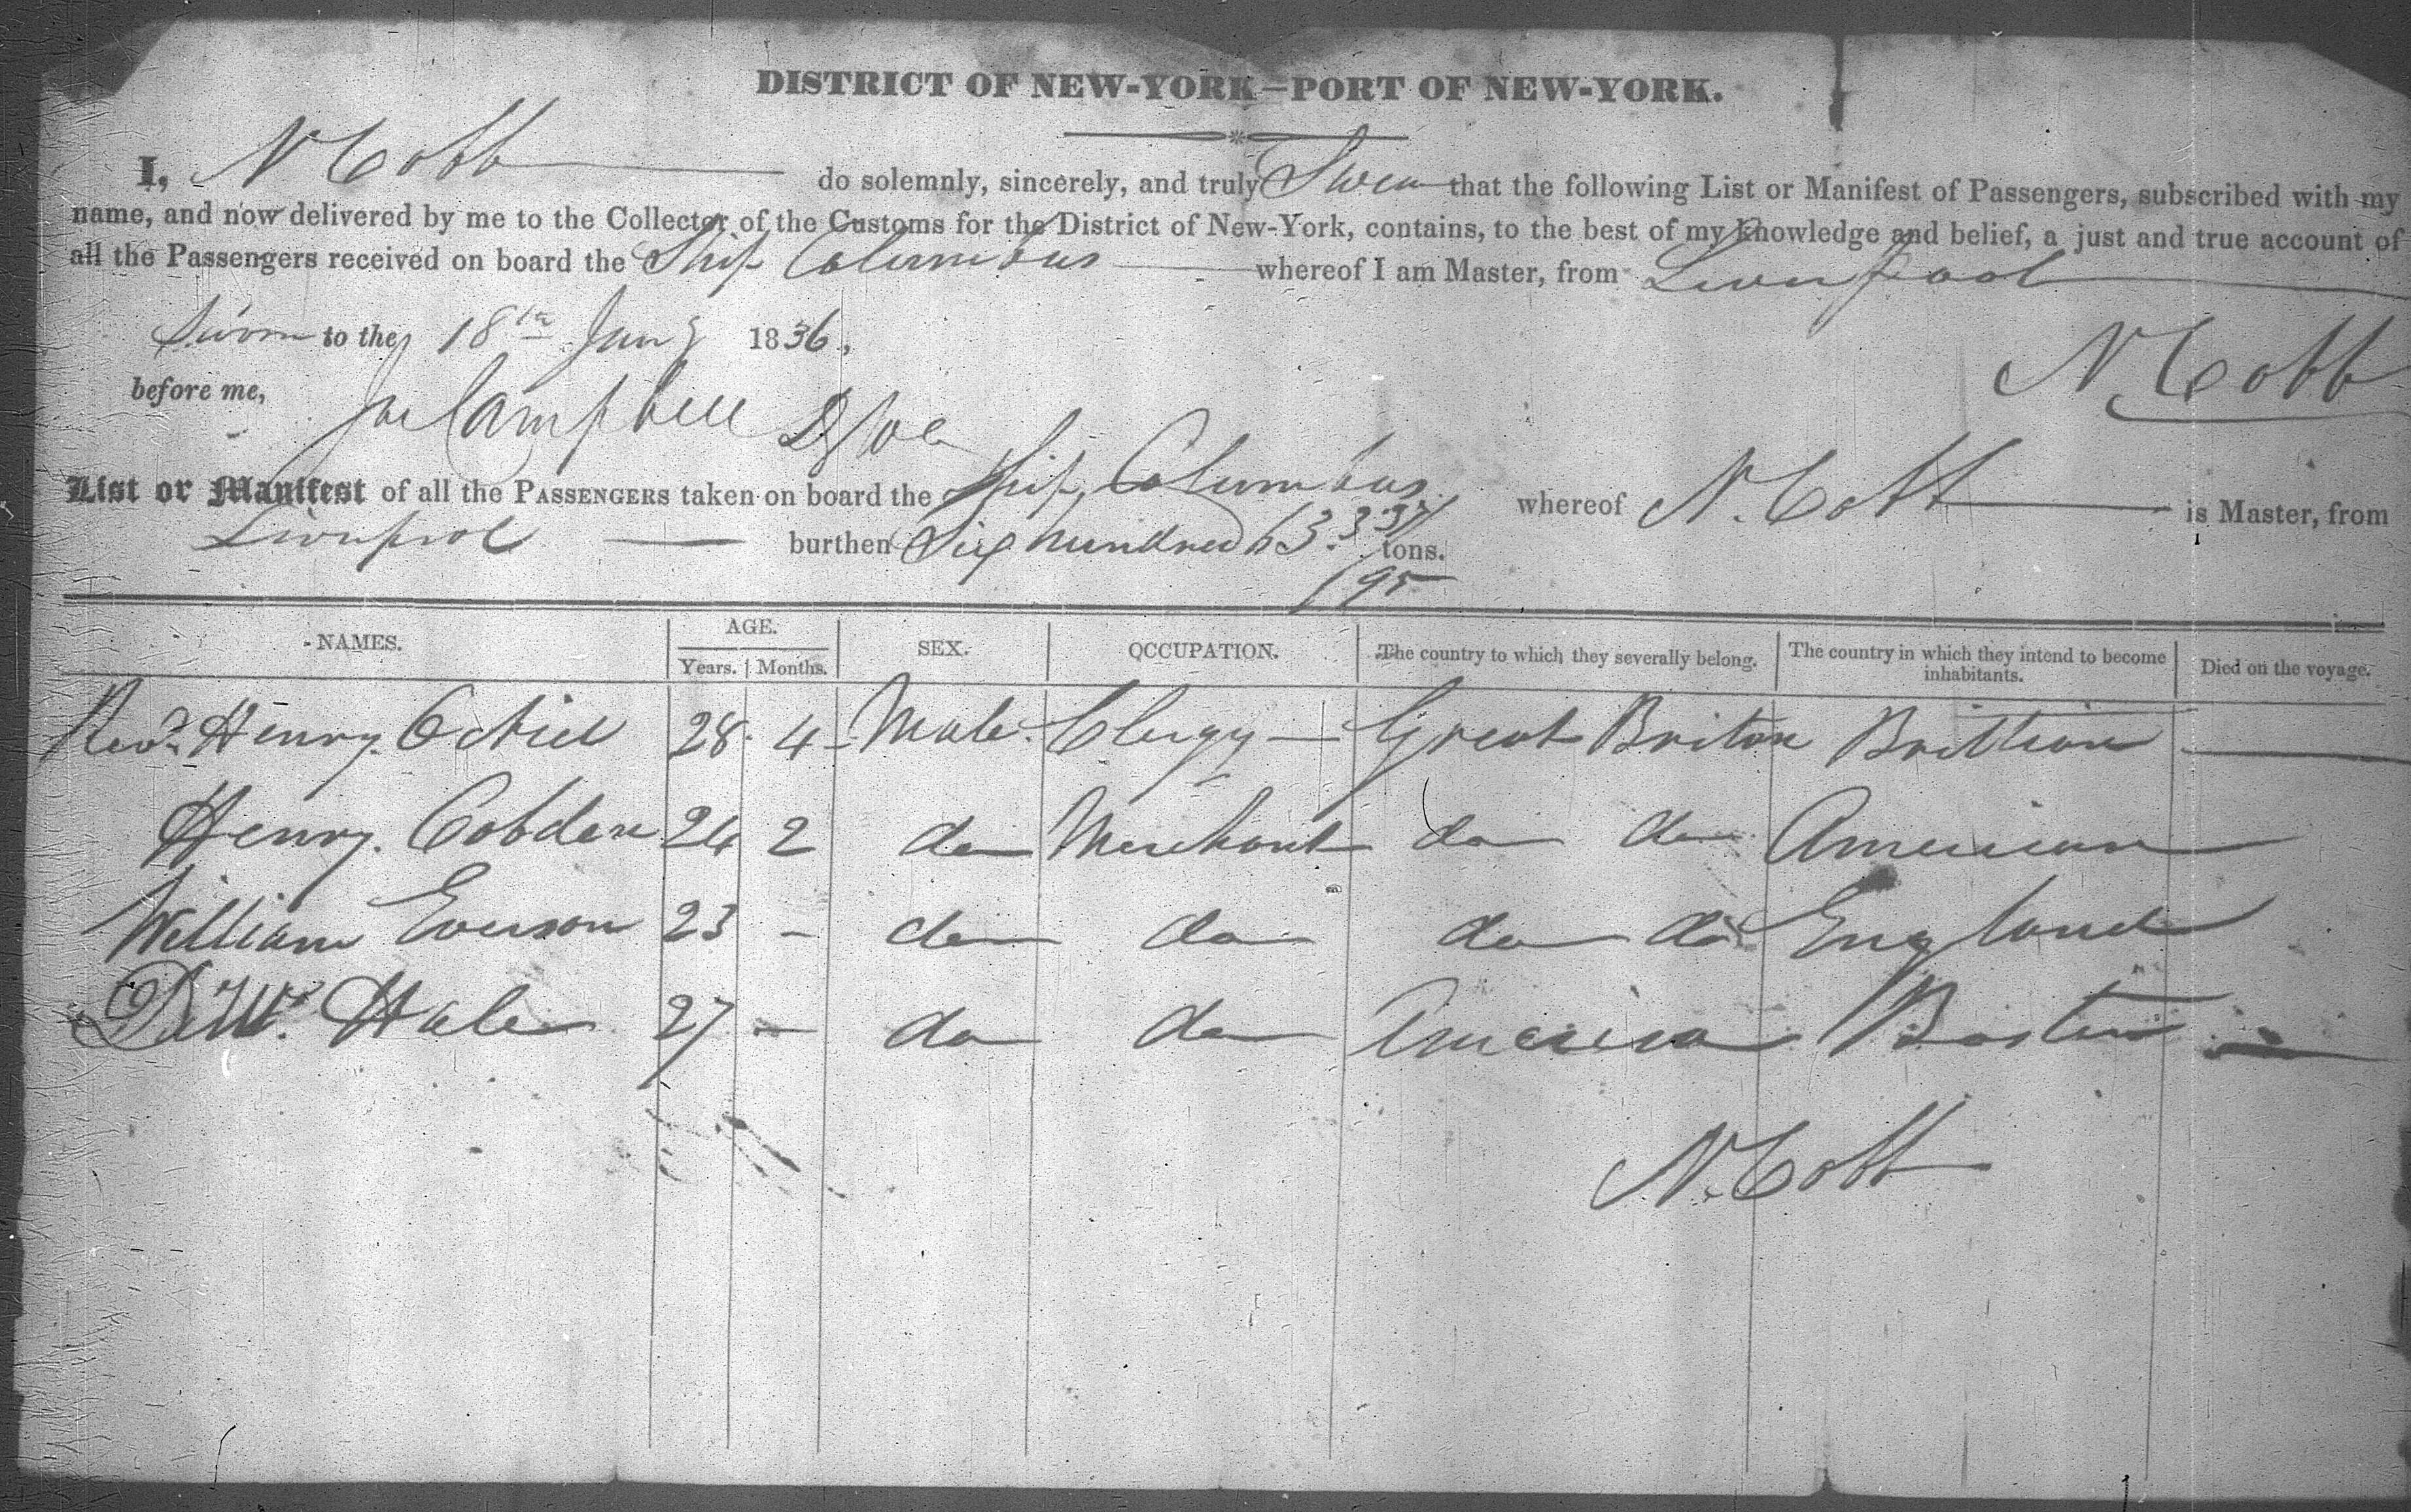 DISTRICT OF NEW-YORK—PORT OF NEW-YORK.
I, N Cobb do solemnly, sincerely, and truly Swear that the following List or Manifest of Passengers, subscribed with my
name, and now delivered by me to the Collector of the Customs for the District of New-York, contains, to the best of my knowledge and belief, a just and true account of
all the Passengers received on board the Ship Columbus whereof I am Master, from Liverpool
Sworn to the 18th Jany 1836,
N Cobb
before me,
Campbell
List or Manifest of all the PASSENGERS taken on board the Ship Columbus whereof N. Cobb is Master, from
Liverpool burthen Six hundred 63. 37/95 tons.
NAMES. AGE. Years. Months. SEX. OCCUPATION. The country to which they severally belong. The country in which they intend to become inhabitants. Died on the voyage.
Revd. Henry 28 4 Male Clergy Great Britain Brittian
Henry. Cobden 24 2 do Merchant do do American
William Everson 23 - do do do do England
Hale 27 - do do America Boston
N. Cobb